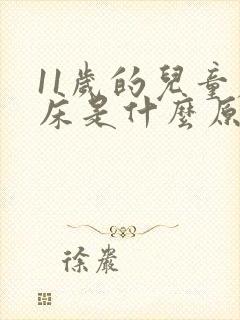 11歲的兒童
床是什麼原
徐巖